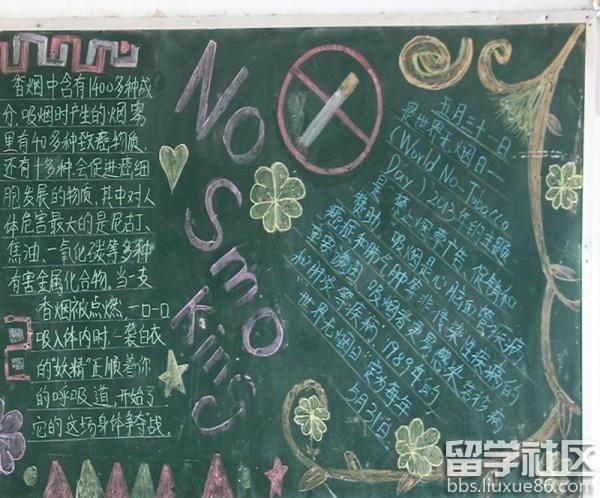 香烟中含有1400多种成
分.吸烟时产生的烟雾
里有40多种致癌物质.
还有十多种会促进癌细
胞发展的物质,其中对人
体危害最大的是尼古丁、
焦油、一氧化碳等多种
有害金属化合物.当一支
香烟被点燃,一口一口
吸入体内时,一袭白衣
的"妖精"正顺着你
的呼吸道,开始了
它的这场身体争夺战.
No
Smo
King
五月三十一日
是世界无烟日一
(World No-Tobacco
Day)2013年的主题
是:禁止烟草广告,促销和
赞助,吸烟是心脑血管疾病、
癌症和肺气肿等非传染性疾病的
重要诱因,吸烟者更易感染
和肺炎等疾病.1989年的,
世界无烟日:定为每年
5月31日.
留学社区
bbs.liuxue86.com